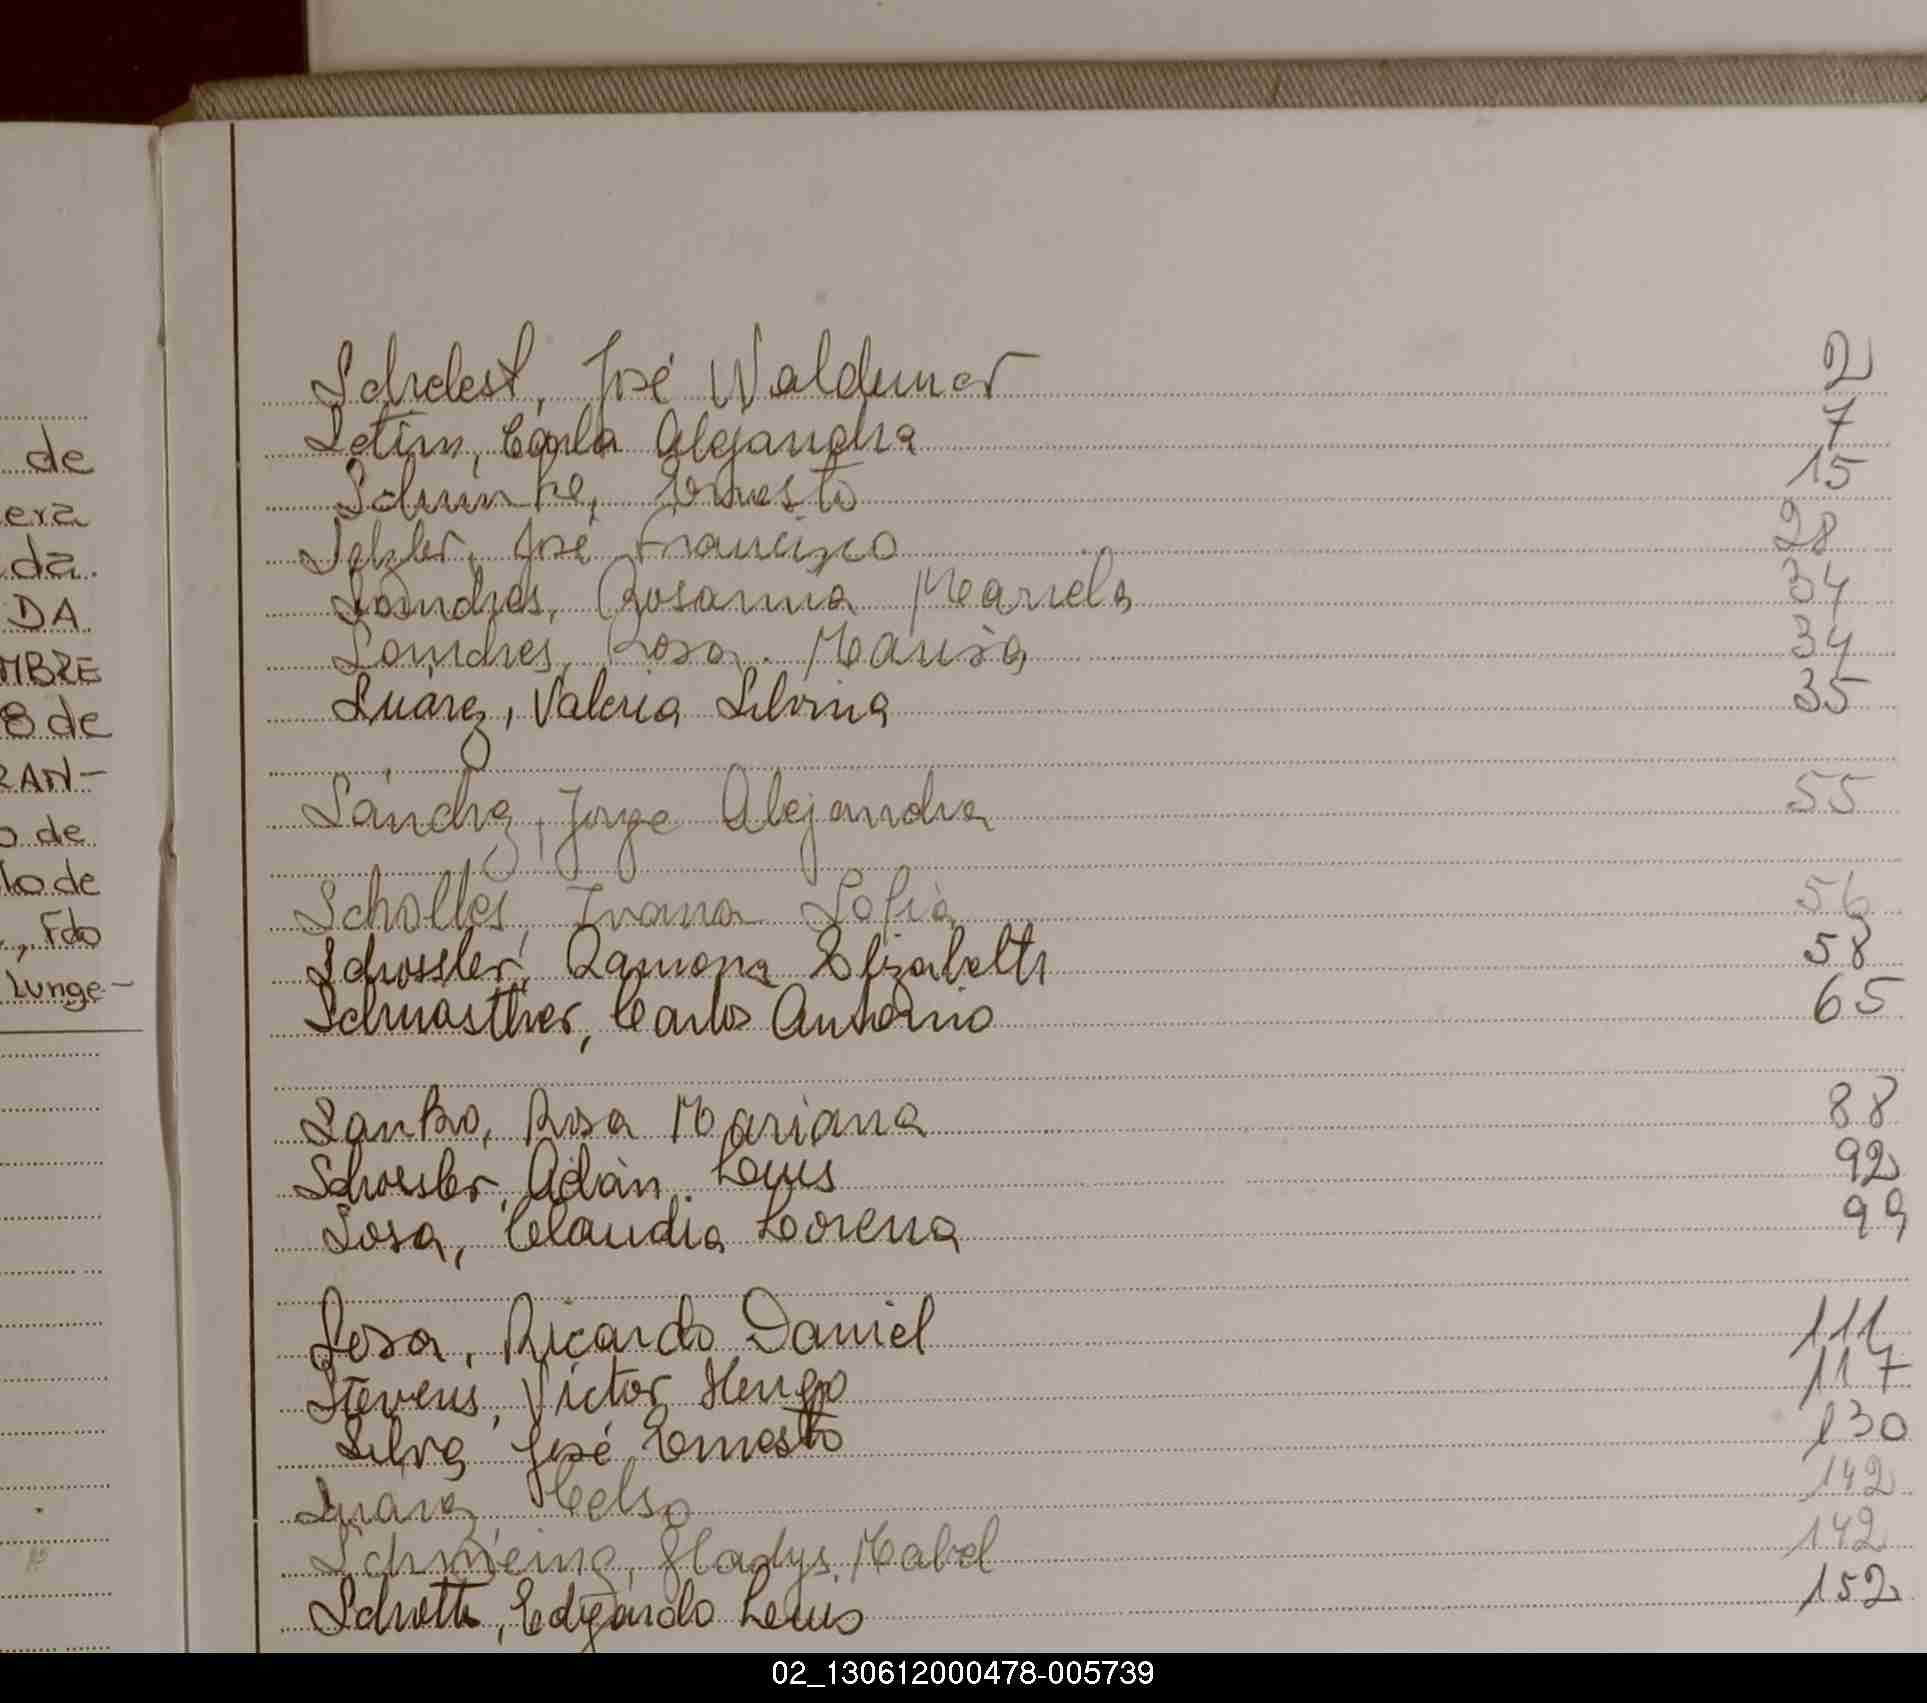 de
era
da.
DA
MBRE
8 de
RAN-
o de
lo de
, Fdo
Lunge-
Schdest, José Waldemar 2
Setim, Carla Alejandra 7
Ernesto 15
José Francisco 28
Saindres, Rosanna Mariela 34
Saindres, Rosa Marisa 34
Suárez, Valeria Silvina 35
Sánchez, Jorge Alejandra 55
Scholles, Ivana Sofia 56
Schossler, Ramona Elizabeth 58
Schuasther, Carlos Antonio 65
Sanko, Rosa Mariana 88
Schossler, Adán Luis 92
Sosa, Claudia Lorena 99
Sosa, Ricardo Daniel 111
Stevens, Victor Hugo 117
Silva José Ernesto 130
Suarez, Celso 142
Gladys Mabel 142
Schott, Edgardo Luis 152
02_130612000478-005739